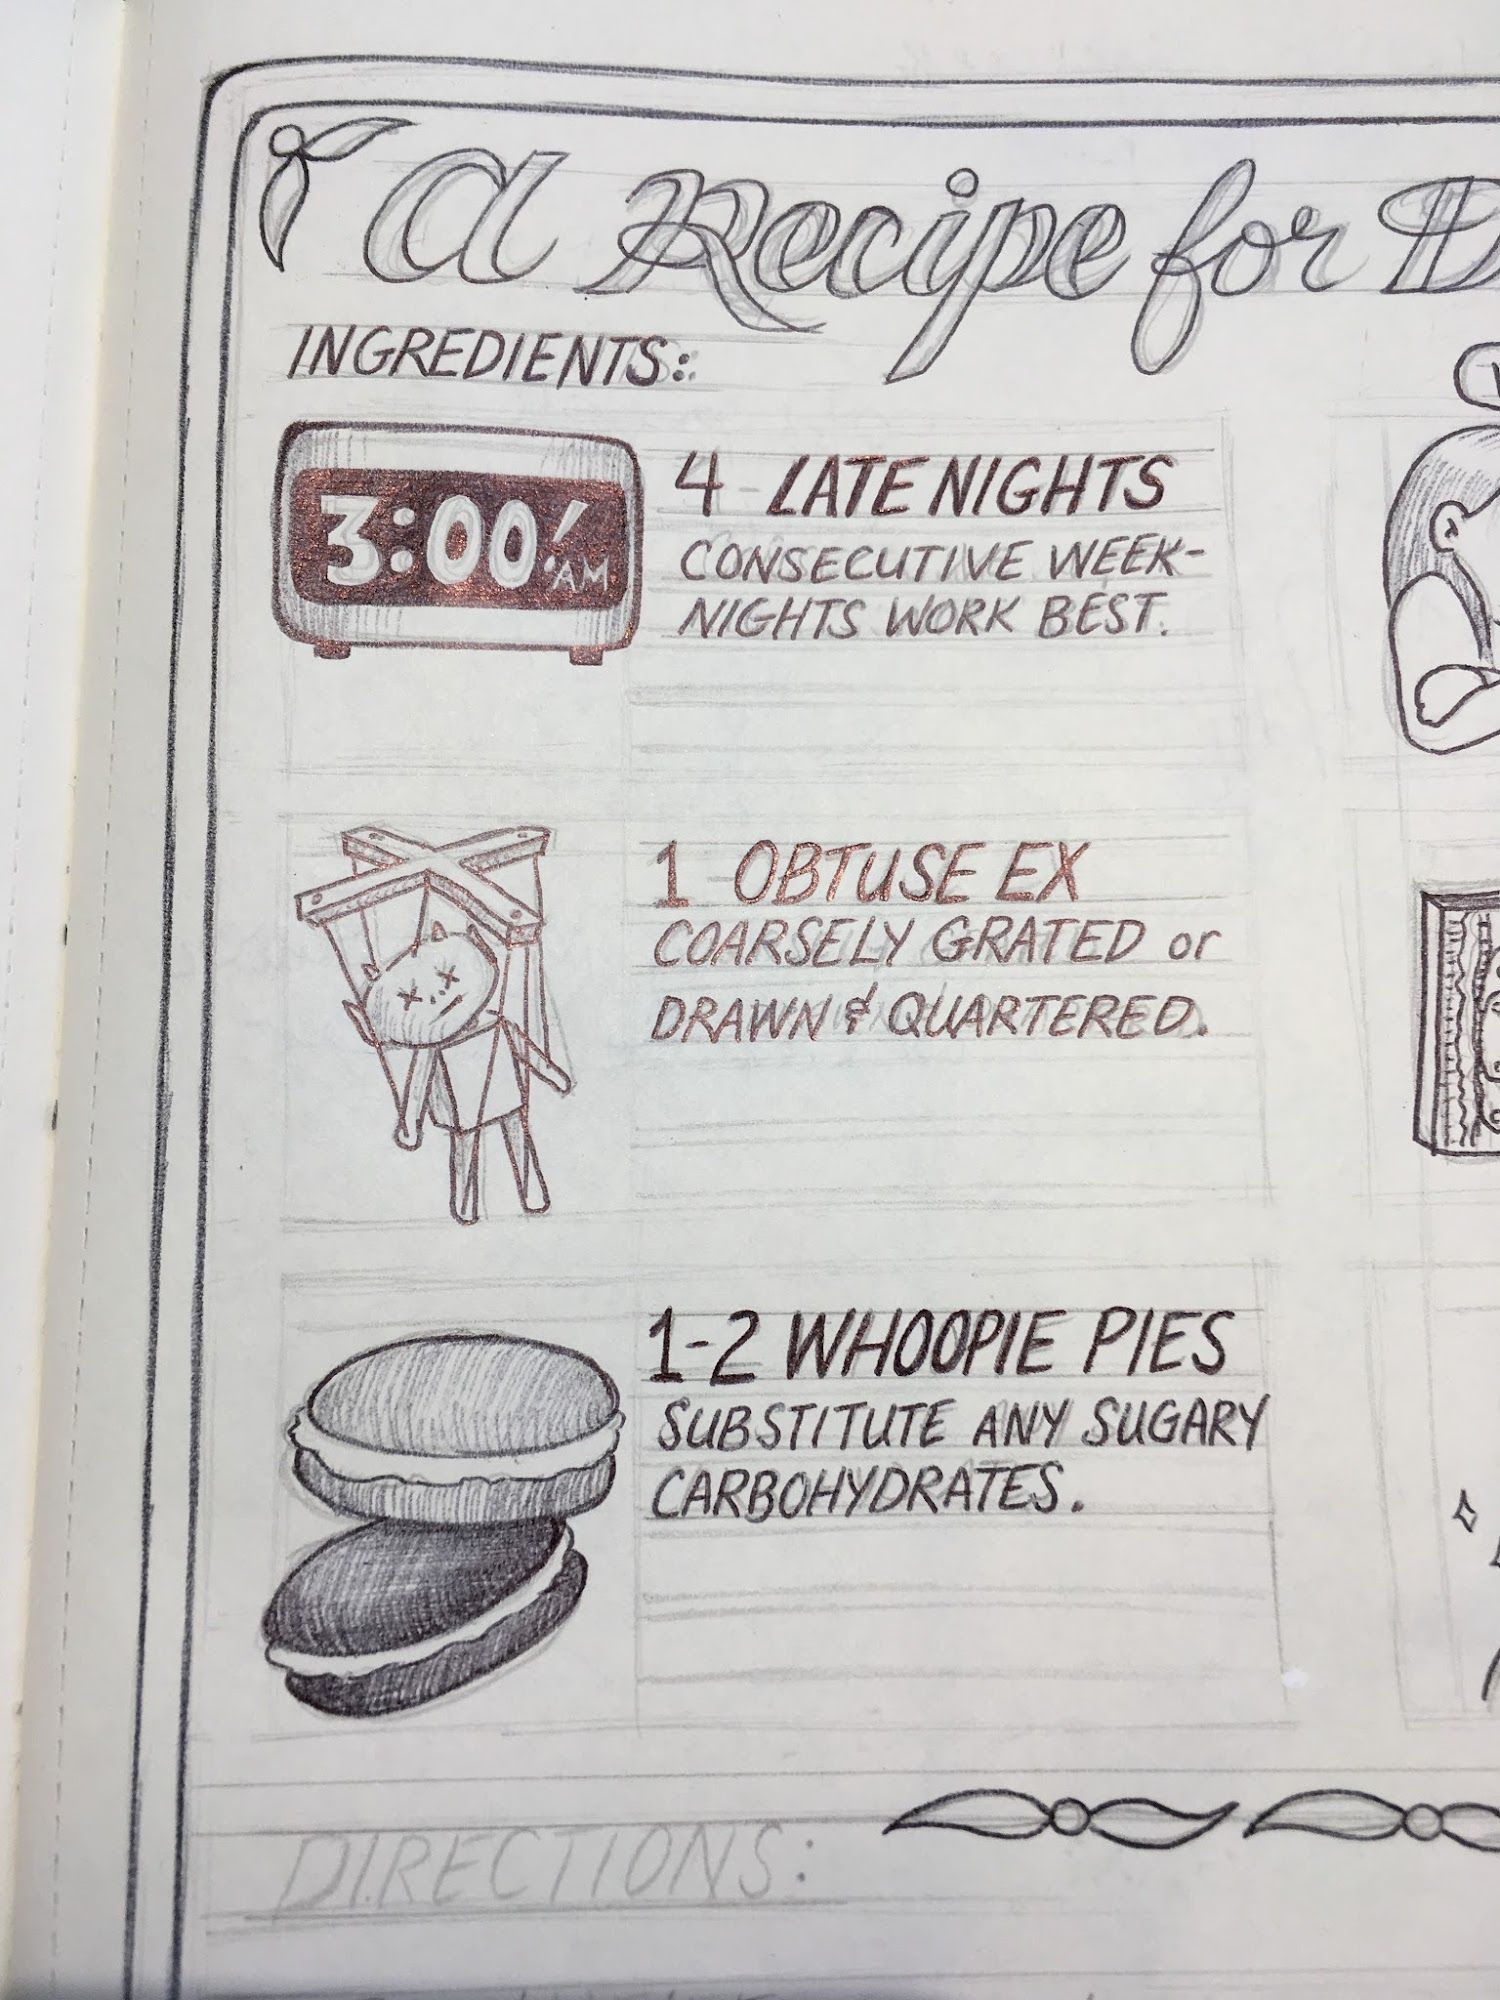 A Recipe for D
INGREDIENTS:
3:00 AM
4 LATE NIGHTS
CONSECUTIVE WEEK-
NIGHTS WORK BEST.
1 OBTUSE EX
COARSELY GRATED or
DRAWN & QUARTERED.
1-2 WHOOPIE PIES
SUBSTITUTE ANY SUGARY
CARBOHYDRATES.
DIRECTIONS: